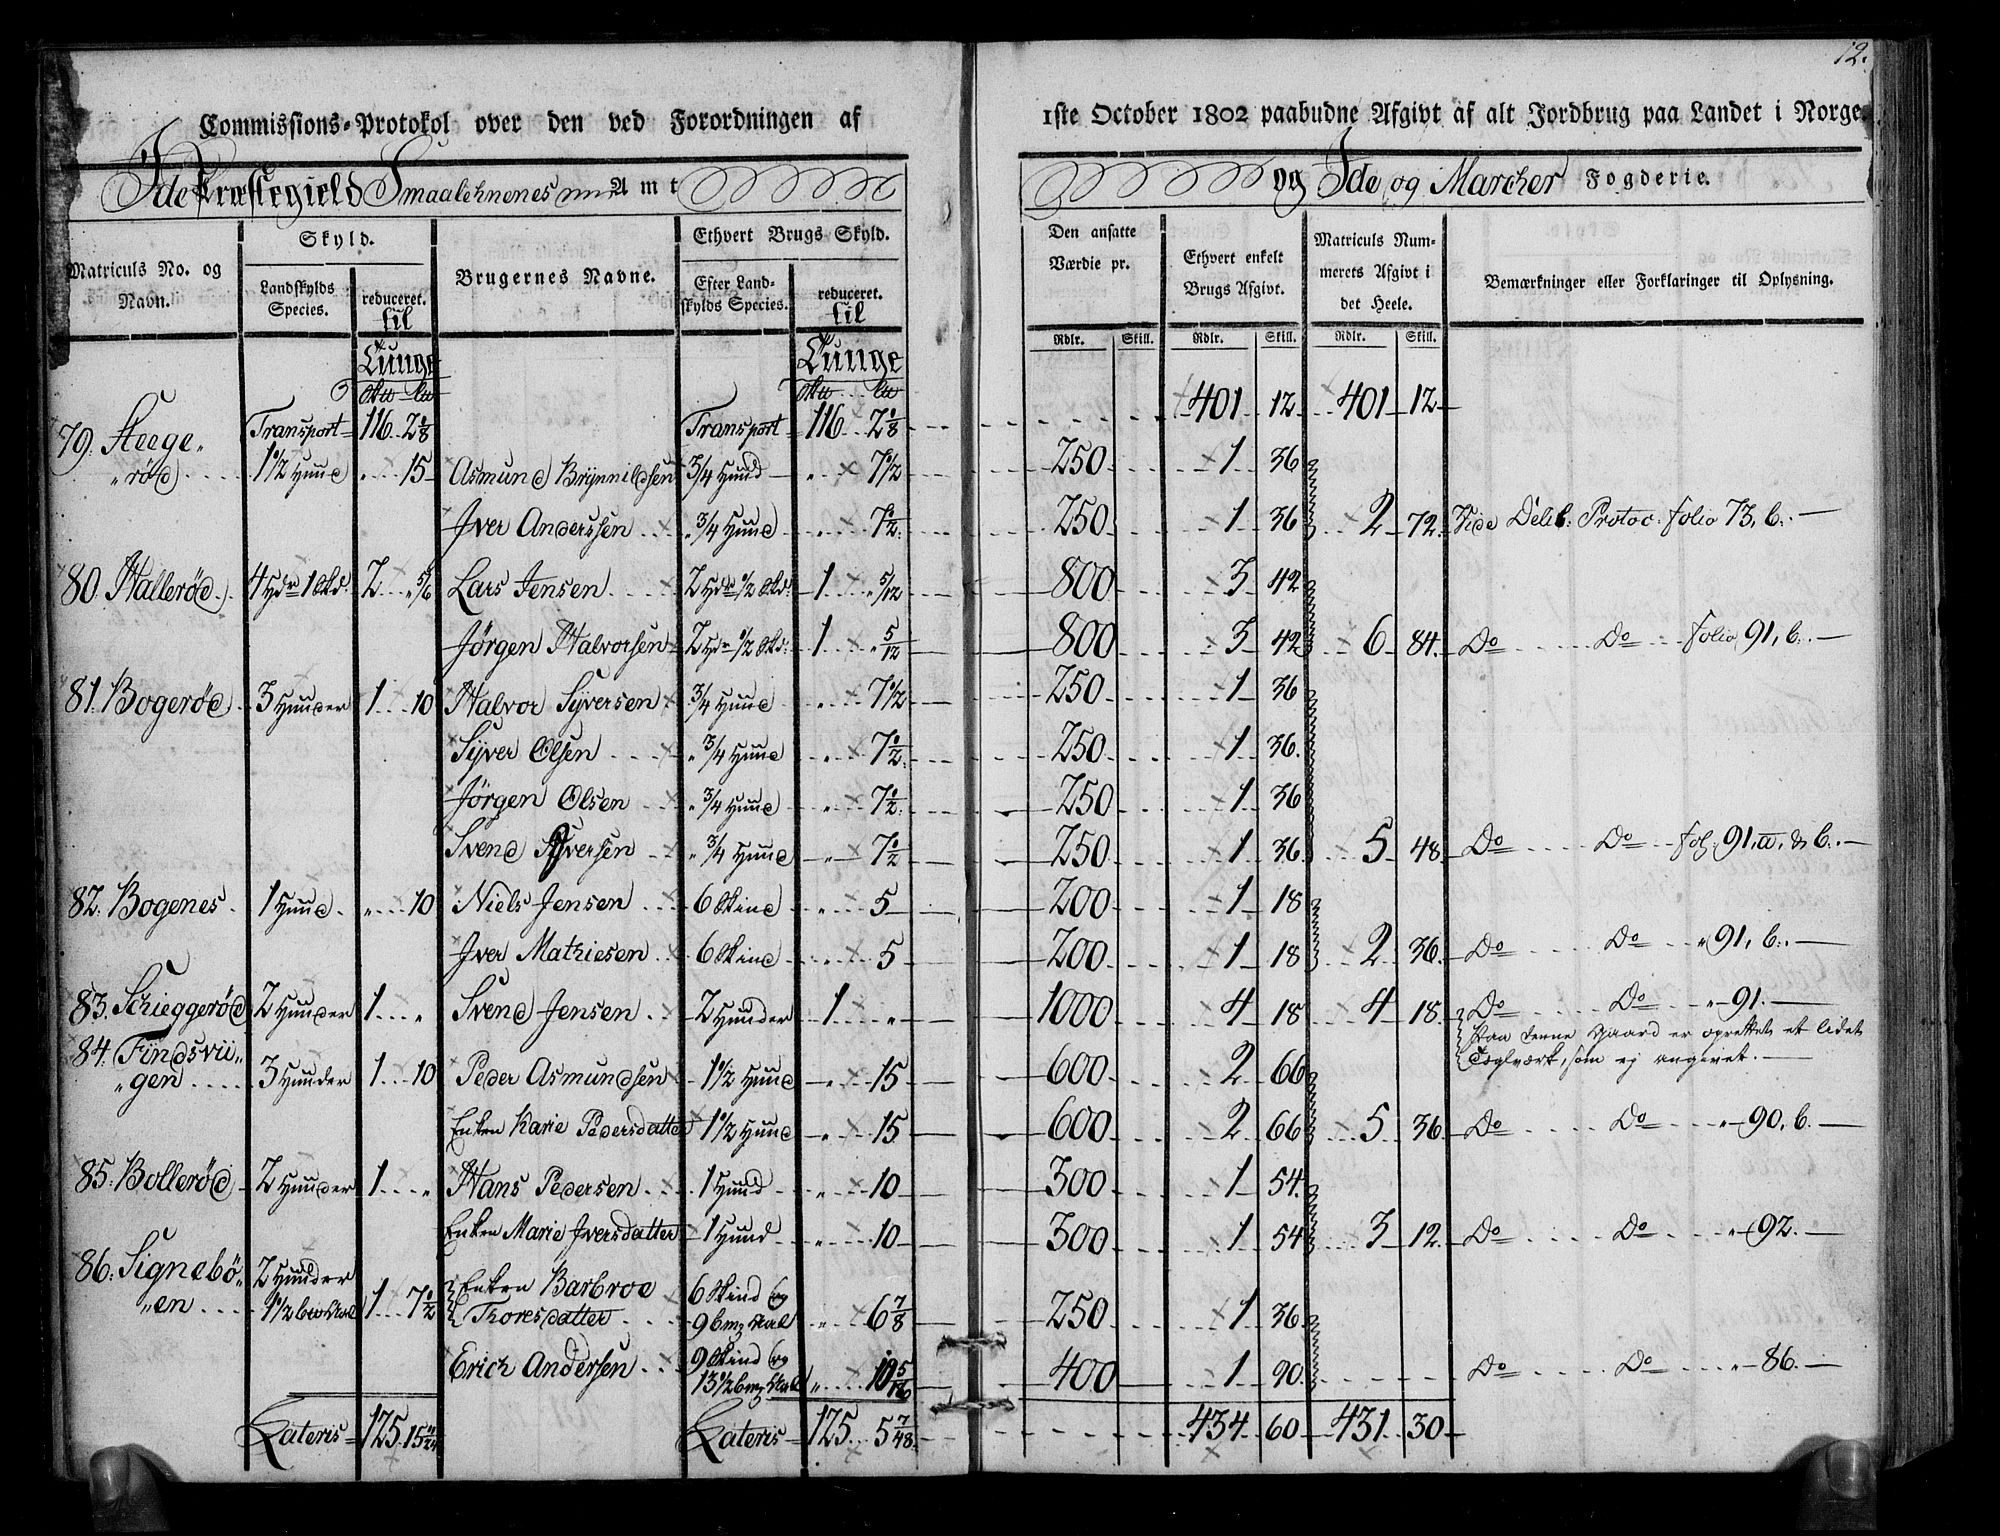 12.
Commissions-Protokol over den ved Forordningen af 1ste October 1802 paabudne Afgivt af alt Jordbrug paa Landet i Norge.
Ide Præstegield Smaalehnenes Amt og Ide og Marcher Fogderie.
Matriculs No. og Navn. | Skyld. | Brugernes Navne. | Ethvert Brugs Skyld. | Den ansatte Værdie pr. | Ethvert enkelt Brugs Afgivt. | Matriculs Nummerets Afgivt i det Heele. | Bemærkninger eller Forklaringer til Oplysning.
Landskylds Species. | reduceret. til | Efter Landskylds Species. | reduceret. til
Rdlr. | Skill. | Rdlr. | Skill. | Rdlr. | Skill.
Tunge | Tunge
Transport 116 .. 2 1/8 | Transport 116 .. 2 1/8 | 401 12 | 401 12
79. Steege„
„röd | 1 1/2 Huud | „ 15 | Asmund Brynnildsen | 3/4 Hund | „ 7 1/2 | 250 | 1 36
Iver Anderssen | 3/4 Huud | „ 7 1/2 | 250 | 1 36 | 2 72 | Vide Delib: Protoc: folio 73, b.
80. Hallerød | 4 Hdr 1 Skd: | 2 „ 5/6 | Lars Jensen | 2 Hdr 1/2 Skd: | 1 „ 5/12 | 800 | 3 42
Jørgen Halvorsen | 2 Hdr 1/2 Skd: | 1 „ 5/12 | 800 | 3 42 | 6 84 | Do Do folio 91, b.
81. Bogerød | 3 Huuder | 1 10 | Halvor Syversen | 3/4 Huud | „ 7 1/2 | 250 | 1 36
Syver Olsen | 3/4 Huud | „ 7 1/2 | 250 | 1 36
Jørgen Olsen | 3/4 Huud | „ 7 1/2 | 250 | 1 36
Svend Syversen | 3/4 Huud | „ 7 1/2 | 250 | 1 36 | 5 48 | Do Do fol: 91, a. & b.
82. Bogenes | 1 Huud | „ 10 | Niels Jensen | 6 Skind | „ 5 | 200 | 1 18
Iver Mathiesen | 6 Skind | „ 5 | 200 | 1 18 | 2 36 | Do Do „ 91, b.
83. Schieggerød | 2 Huuder | 1 „ | Svend Jensen | 2 Huuder | 1 „ | 1000 | 4 18 | 4 18 | Do Do „ 91.
Paa denne Gaard er oprettet et lidet
Teglværk, som ej angivet.
84. Fyndsvii„
„gen | 3 Huuder | 1 10 | Peder Asmundsen | 1 1/2 Huud | „ 15 | 600 | 2 66
Enken Karie Pedersdatter | 1 1/2 Huud | „ 15 | 600 | 2 66 | 5 36 | Do Do „ 90, b.
85. Bollerød | 2 Huuder | 1 „ | Hans Pedersen | 1 Hund | „ 10 | 300 | 1 54
Enken Marie Iversdatter | 1 Hund | „ 10 | 300 | 1 54 | 3 12 | Do Do „ 92.
86. Signebö„
„en | 2 Hunder
1 1/2 | 1 7 1/2 | Enken Barbroe
Thoresdatter | 6 Skind og
9 bmz Sæl | „ 6 7/8 | 250 | 1 36
Erich Andersen | 9 Skind og
13 1/2 bmz | „ 10 5/16 | 400 | 1 90 | Do Do „ 86.
Lateris 125 15 11/24 | Lateris 125 5 7/48 | 434 60 | 431 30